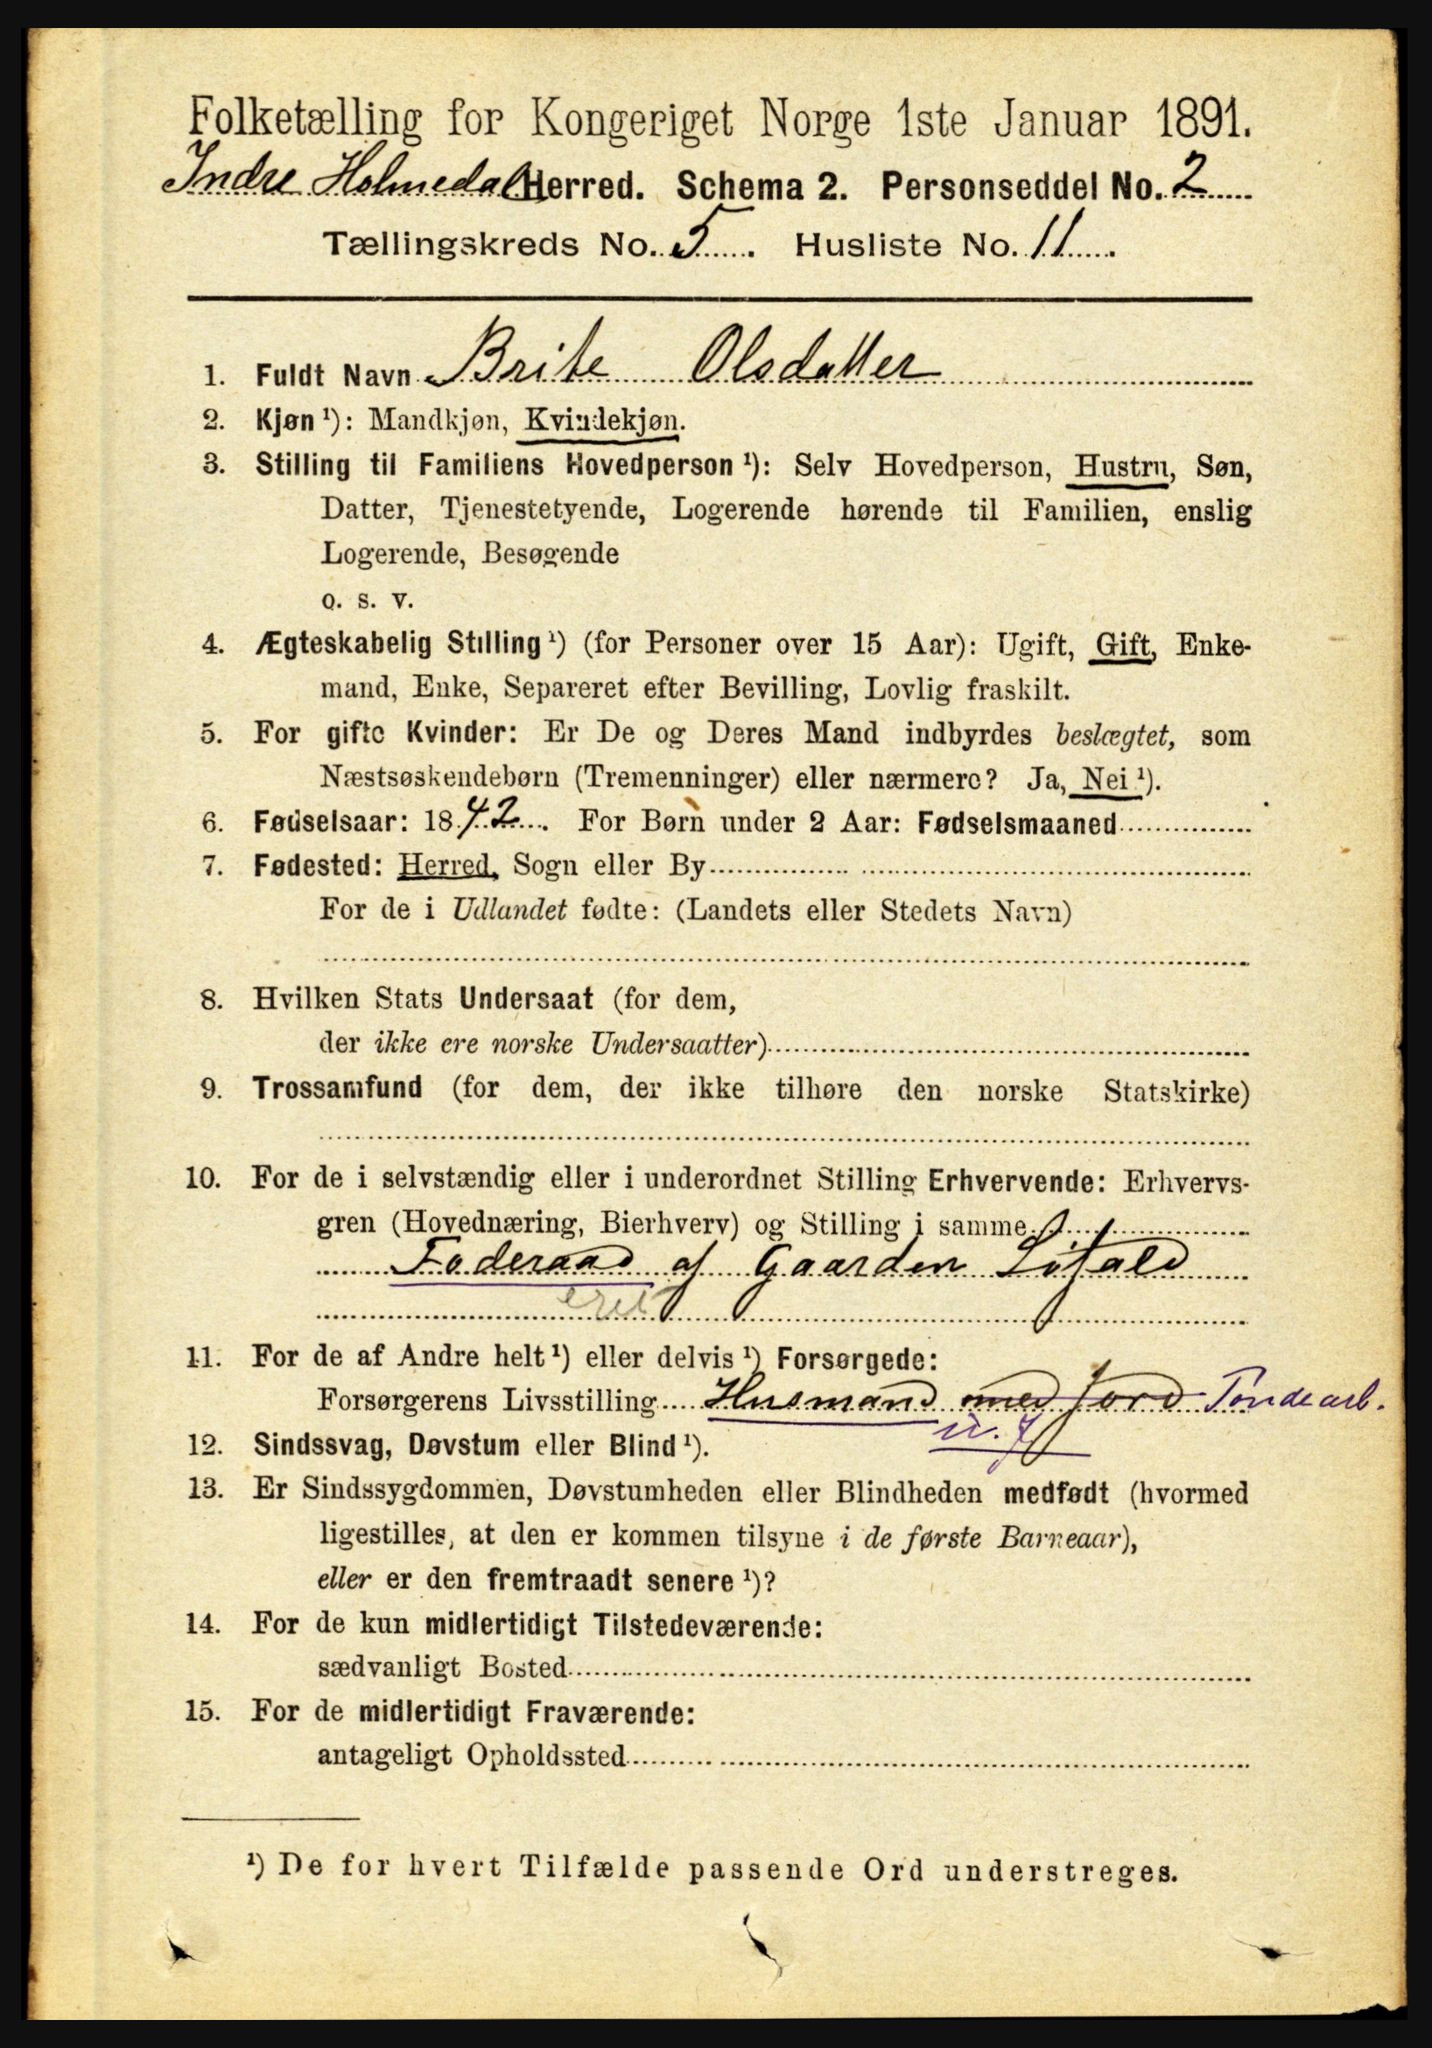 Folketælling for Kongeriget Norge 1ste Januar 1891.
Indre Holmedal Herred. Schema 2. Personseddel No. 2
Tællingskreds No. 5. Husliste No. 11.
1. Fuldt Navn Brite Olsdatter
2. Kjøn ¹): Mandkjøn, Kvindekjøn.
3. Stilling til Familiens Hovedperson ¹): Selv Hovedperson, Hustru, Søn,
Datter, Tjenestetyende, Logerende hørende til Familien, enslig
Logerende, Besøgende
o. s. v.
4. Ægteskabelig Stilling ¹) (for Personer over 15 Aar): Ugift, Gift, Enke-
mand, Enke, Separeret efter Bevilling, Lovlig fraskilt.
5. For gifte Kvinder: Er De og Deres Mand indbyrdes beslægtet, som
Næstsøskendebørn (Tremenninger) eller nærmere? Ja, Nei ¹).
6. Fødselsaar: 1842. For Børn under 2 Aar: Fødselsmaaned
7. Fødested: Herred, Sogn eller By
For de i Udlandet fødte: (Landets eller Stedets Navn)
8. Hvilken Stats Undersaat (for dem,
der ikke ere norske Undersaatter)
9. Trossamfund (for dem, der ikke tilhøre den norske Statskirke)
10. For de i selvstændig eller i underordnet Stilling Erhvervende: Erhvervs-
gren (Hovednæring, Bierhverv) og Stilling i samme
Føderaad af Gaarden
11. For de af Andre helt ¹) eller delvis ¹) Forsørgede:
Forsørgerens Livsstilling Husmand med Jord
12. Sindssvag, Døvstum eller Blind ¹).
13. Er Sindssygdommen, Døvstumheden eller Blindheden medfødt (hvormed
ligestilles, at den er kommen tilsyne i de første Barneaar),
eller er den fremtraadt senere ¹)?
14. For de kun midlertidigt Tilstedeværende:
sædvanligt Bosted
15. For de midlertidigt Fraværende:
antageligt Opholdssted
¹) De for hvert Tilfælde passende Ord understreges.